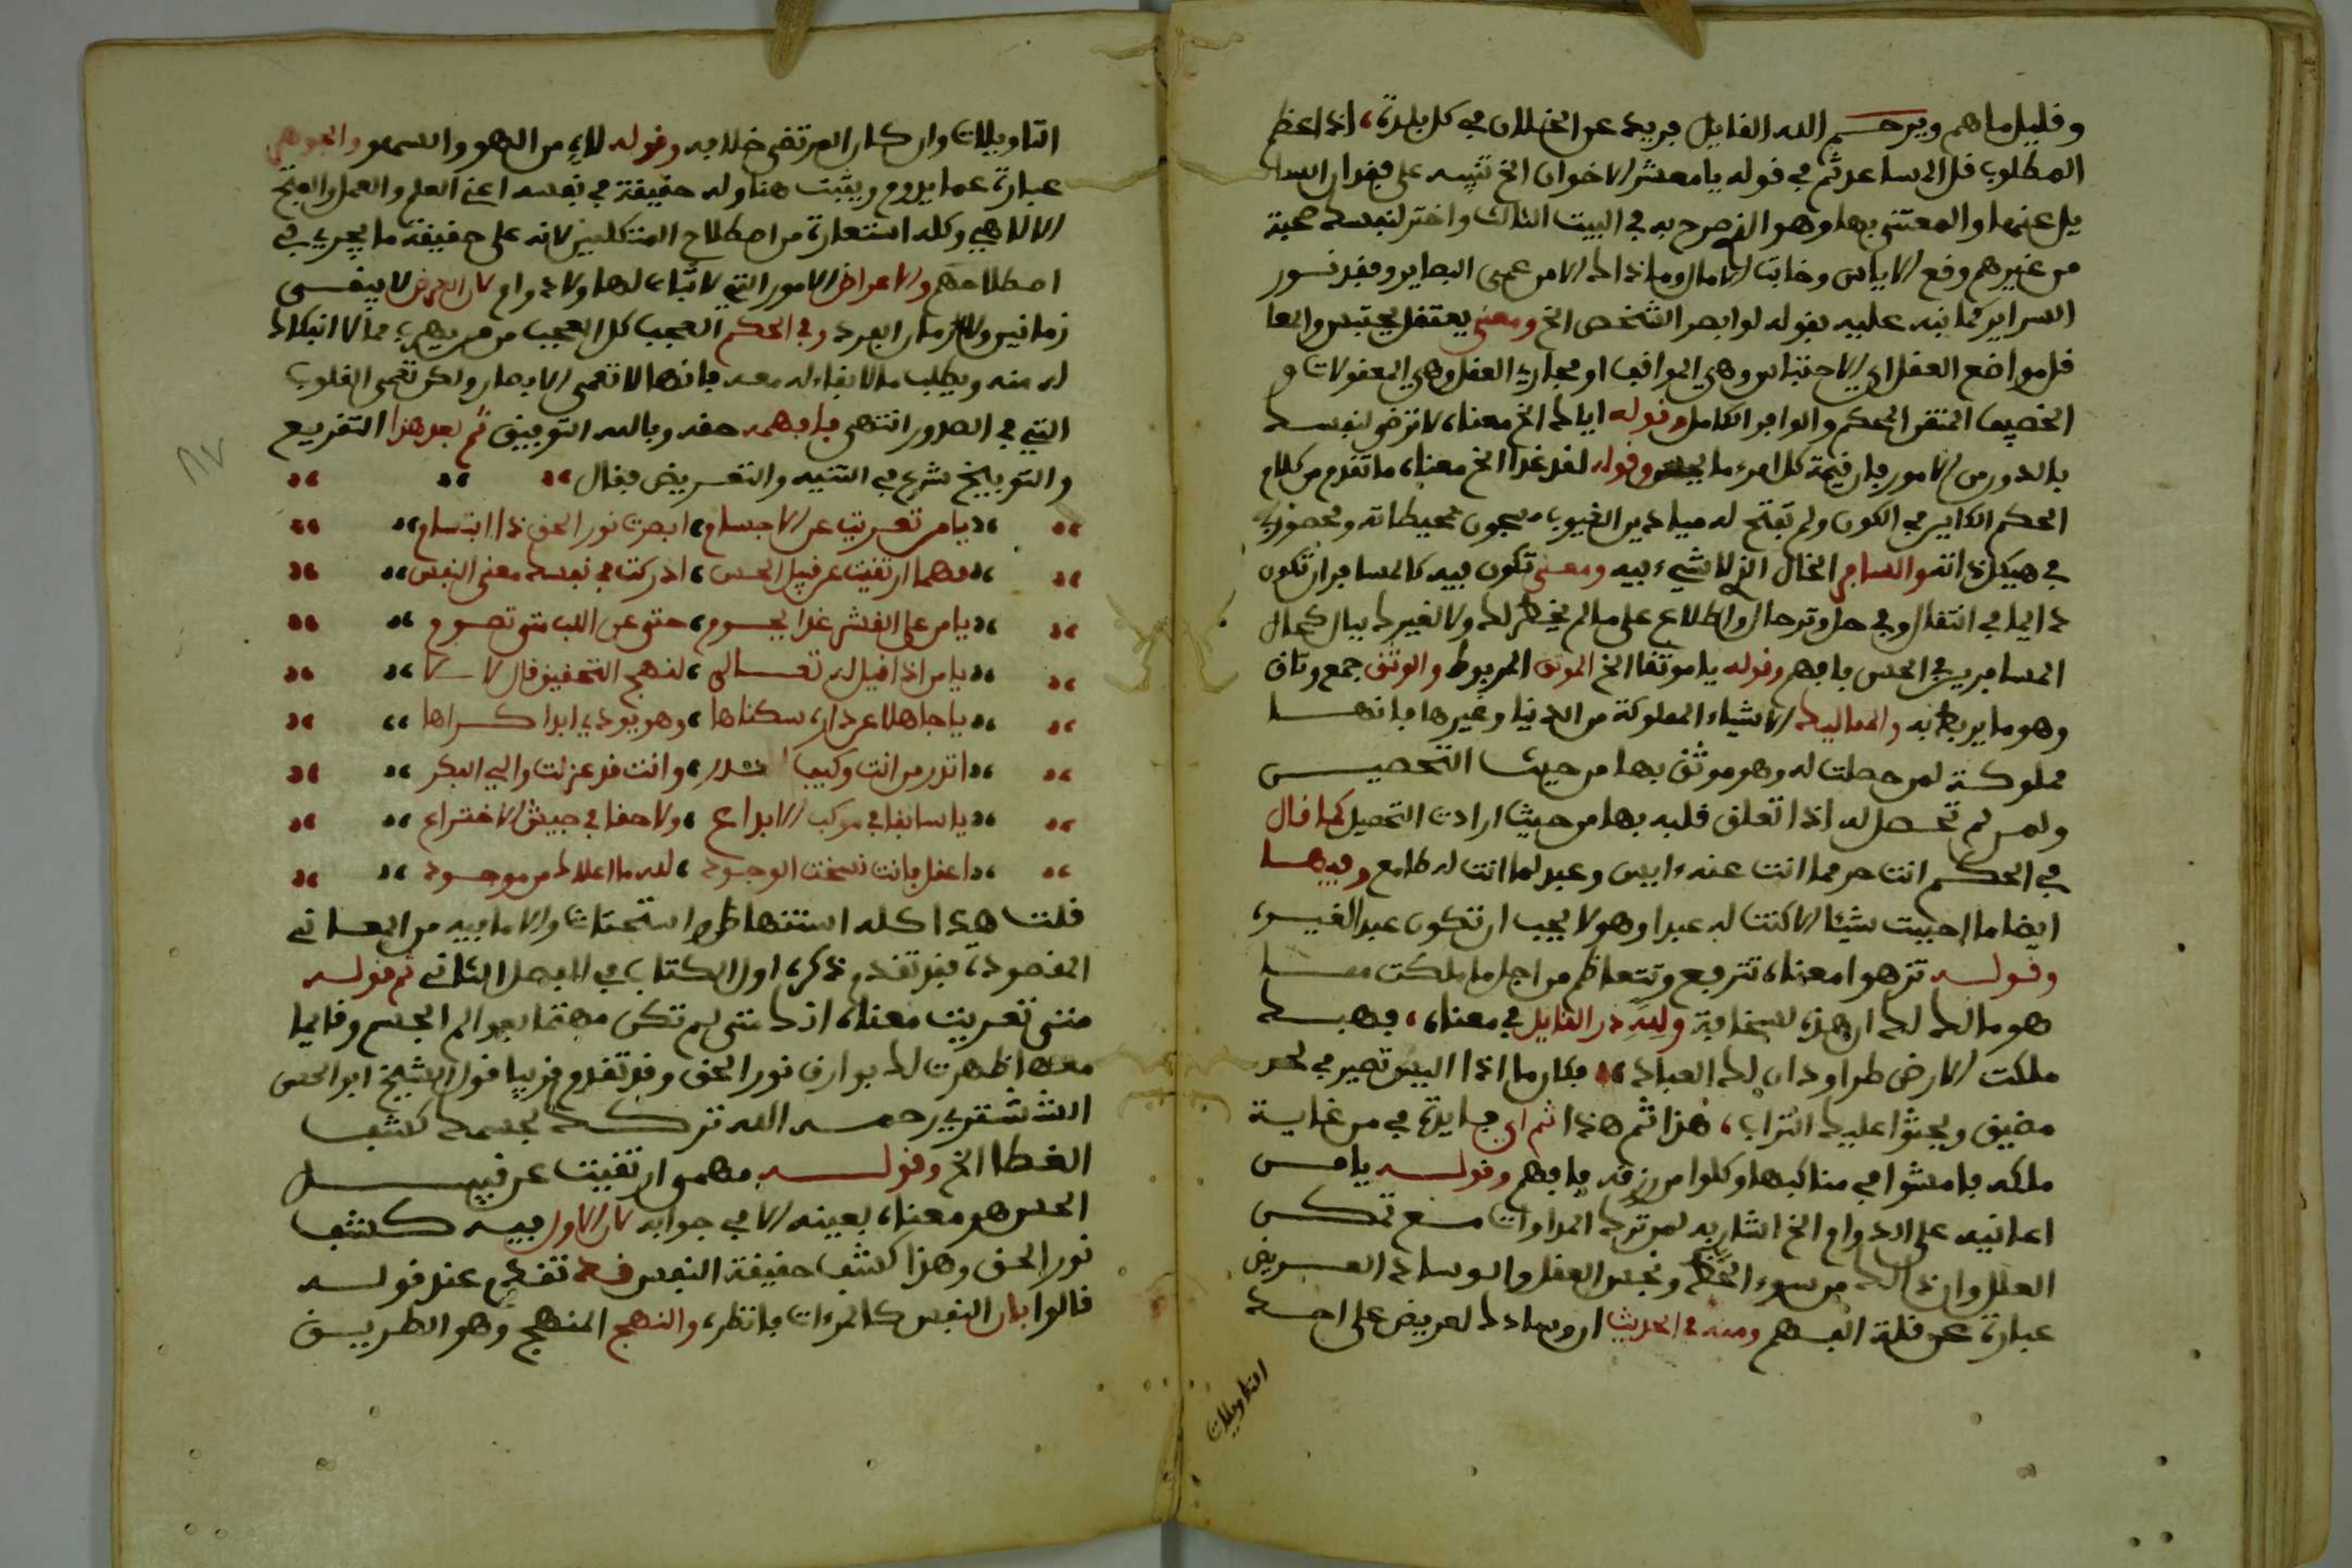 وقليل ماهم ويرحم الله القايل فريد عن الخلان في كل بلدة، اذا عظم
المطلوب قل المساعد ثم في قوله يا معشر الاخوان الخ تنبيه على فقدان السا
يل عنها والمعتنى بها وهو الذي صرح به في البيت الثالث واختر لنفسك صحبة
من غيرهم وقع الاياس وخابت الامال وما ذاك الا من عمى البصاير وفقد نور
السراير كما نبه عليه بقوله لو ابصر الشخص الخ ومعنى يعتقل يحتبس والمعا
قل مواضع العقل اي الاحتباس وهي المراقب او مجاري العقل وهي المعقولات و
الحصيف المتقن المحكم والوافر الكامل وقوله اياك الخ معناه لا ترض لنفسك
بالدون من الامور فان قيمة كل امرء ما يحسن وقوله لقد غدا الخ معناه ما تقدم من كلام
الحكم الكاين في الكون ولم تفتح له ميادين الغيوب مسجون بمحيطاته ومحصور
في هيكل ذاته والساجي الخال الذي لا شيء فيه ومعنى تكون فيه كالمسافر ان تكون
دايما في انتقال وفي حل وترحال واطلاع على ما لم يخطر لك ولا لغيرك ببال كحال
المسافرين في الحس فافهم وقوله يا موثقا الخ الموثق المربوط والوثق جمع وثاق
وهو ما يربط به والمماليك الاشياء المملوكة من الدنيا وغيرها فانها
مملوكة لمن حصلت له وهو موثق بها من حيث التحصيـن
ولمن لم تحصل له اذا تعلق قلبه بها من حيث ارادت التحصيل كما قال
في الحكم انت حر مما انت عنه ءايس وعبد لما انت له طامع وفيها
ايضا ما احببت شيئا الا كنت له عبدا وهو لا يحب ان تكون عبد الغيره
وقوله تزهوا معناه تترفع وتتعاظم من اجل ما ملكت مما
هو مالك لك ان هذه لسخافة ولله در القايل في معناه، فهبك
ملكت الارض طرا ودان لك العباد فكان ماذا اليس تصير في لحد
مضيق ويحثوا عليك التراب، هذا ثم هذا ثم اي فايدة في من غاية
ملكه فامشوا في مناكبها وكلوا من رزقه فافهم وقوله يا من
اعانيه على الدوام الخ اشار به لمن ترك المداوات مع تمكن
العلل وان ذالك من سوء الحظ ونحس العقل والوساد العريض
عبارة عن قلة الفهم ومنه في الحديث ان وسادك لعريض على احد
التاويلات
التاويلات وان كان المرتضى خلافه وقوله لاه من اللهو والسهو والجوهر
عبارة عما يدوم ويثبت هنا وله حقيقة في نفسه اعني العلم والعمل والفتح
الالاهي وكله استعارة من اصطلاح المتكلمين لانه على حقيقة ما يجري في
اصطلاحهم والاعراض الامور التي لا ثبات لها ولا دوام لان العرض لا يبقى
زمانين ولا زمان الفرد وفي الحكم العجب كل العجب ممن يهرب مما لا انفكاك
له منه ويطلب ما لا بقاء له معه فانها لا تعمى الابصار ولكن تعمى القلوب
التي في الصدور انتهى فافهمه حقه وبالله التوفيق ثم بعد هذا التقريع
والتوبيخ شرع في التنبيه والتعريض فقال
يا من تعريت عن الاجسام، ابصرت نور الحق ذا ابتسام
مهما ارتقيت عن قبيل الحس، ادركت في نفسك معنى النفس
يا من على القشر غدا يحوم، حتى عن اللب متى تصوم
يا من اذا قيل له تعالى، لنهج التحقيق قال لا لا
يا جاهلا عن دار سكناها، وهو يودي ابدا كراها
اتدر من انت وكيف تدر، وانت قد عزلت والي الفكر
يا سابقا في موكب الابداع، ولاحقا في جيش الاختراع
اعقل فانت نسخت الوجود، لله ما اعلاك من موجود
قلت هذا كله استنهاض واستحثاث والا ما فيه من المعاني
المقصودة فقد تقدم ذكره اول الكتاب في الفصل الثاني ثم قوله
متى تعريت معناه انك متى لم تكن مهتما بعوالم الجسم وقايما
معها ظهرت لك بوارق نور الحق وقد تقدم قريبا قول الشيخ ابو الحسن
الششتري رحمه الله تركك لجسمك كشف
الغطا الخ وقوله مهموا ارتقيت عن قبيل
الحس هو معناه بعينه الا في جوابه لان الاول فيه كشف
نور الحق وهذا كشف حقيقة النفس قد تقدم عند قوله
قالوا بان النفس كالمرءات فانظره والنهج المنهج وهو الطريق